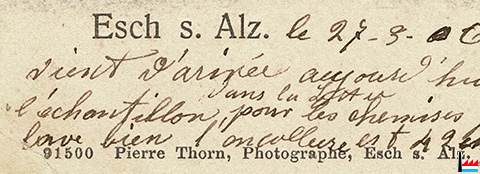 Esch s. Alz. le 27-3-
vient d'arivée aujourd'hui
dans la
l'échantillon pour les chemises
bien l'encollure est 42
91500 Pierre Thorn, Photographe, Esch s. Alz.